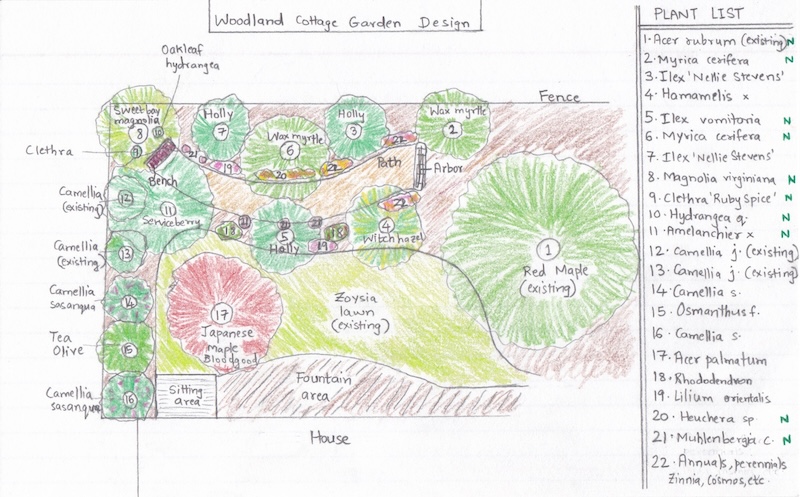 Woodland Cottage Garden Design
Oakleaf
hydrangea
Fence
Sweetbay
magnolia
8
10
9
Clethra
Bench
Holly
7
21
19
Wax myrtle
6
20
22
Holly
3
22
Path
Wax myrtle
2
Arbor
22
Camellia
(existing)
12
11
Serviceberry
18
21
5
Holly
21
18
19
4
Witchhazel
1
Red Maple
(existing)
Camellia
(existing)
13
Camellia
sasanqua
14
17
Japanese
Maple
Bloodgood
Zoysia
lawn
(existing)
Tea
Olive
15
Camellia
sasanqua
16
Sitting
area
Fountain
area
House
PLANT LIST
1. Acer rubrum (existing) N
2. Myrica cerifera N
3. Ilex 'Nellie Stevens'
4. Hamamelis x
5. Ilex vomitoria N
6. Myrica cerifera N
7. Ilex 'Nellie Stevens'
8. Magnolia virginiana N
9. Clethra 'Ruby Spice' N
10. Hydrangea q. N
11. Amelanchier x N
12. Camellia j. (existing)
13. Camellia j. (existing)
14. Camellia s.
15. Osmanthus f.
16. Camellia s.
17. Acer palmatum
18. Rhododendron
19. Lilium orientalis
20. Heuchera sp N
21. Muhlenbergia c. N
22. Annuals, perennials
Zinnia, Cosmos, etc.